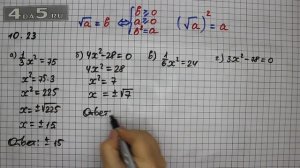 4DA5.RU
√a = b ⇔ { a ≥ 0 b ≥ 0 b² = a (√a)² = a
10.23
а) 1/3 x² = 75
x² = 75·3
x² = 225
x = ±√225
x = ±15
Ответ: ±15
б) 4x² - 28 = 0
4x² = 28
x² = 7
x = ±√7
Ответ
в) 1/6 x² = 24
г) 3x² - 28 = 0